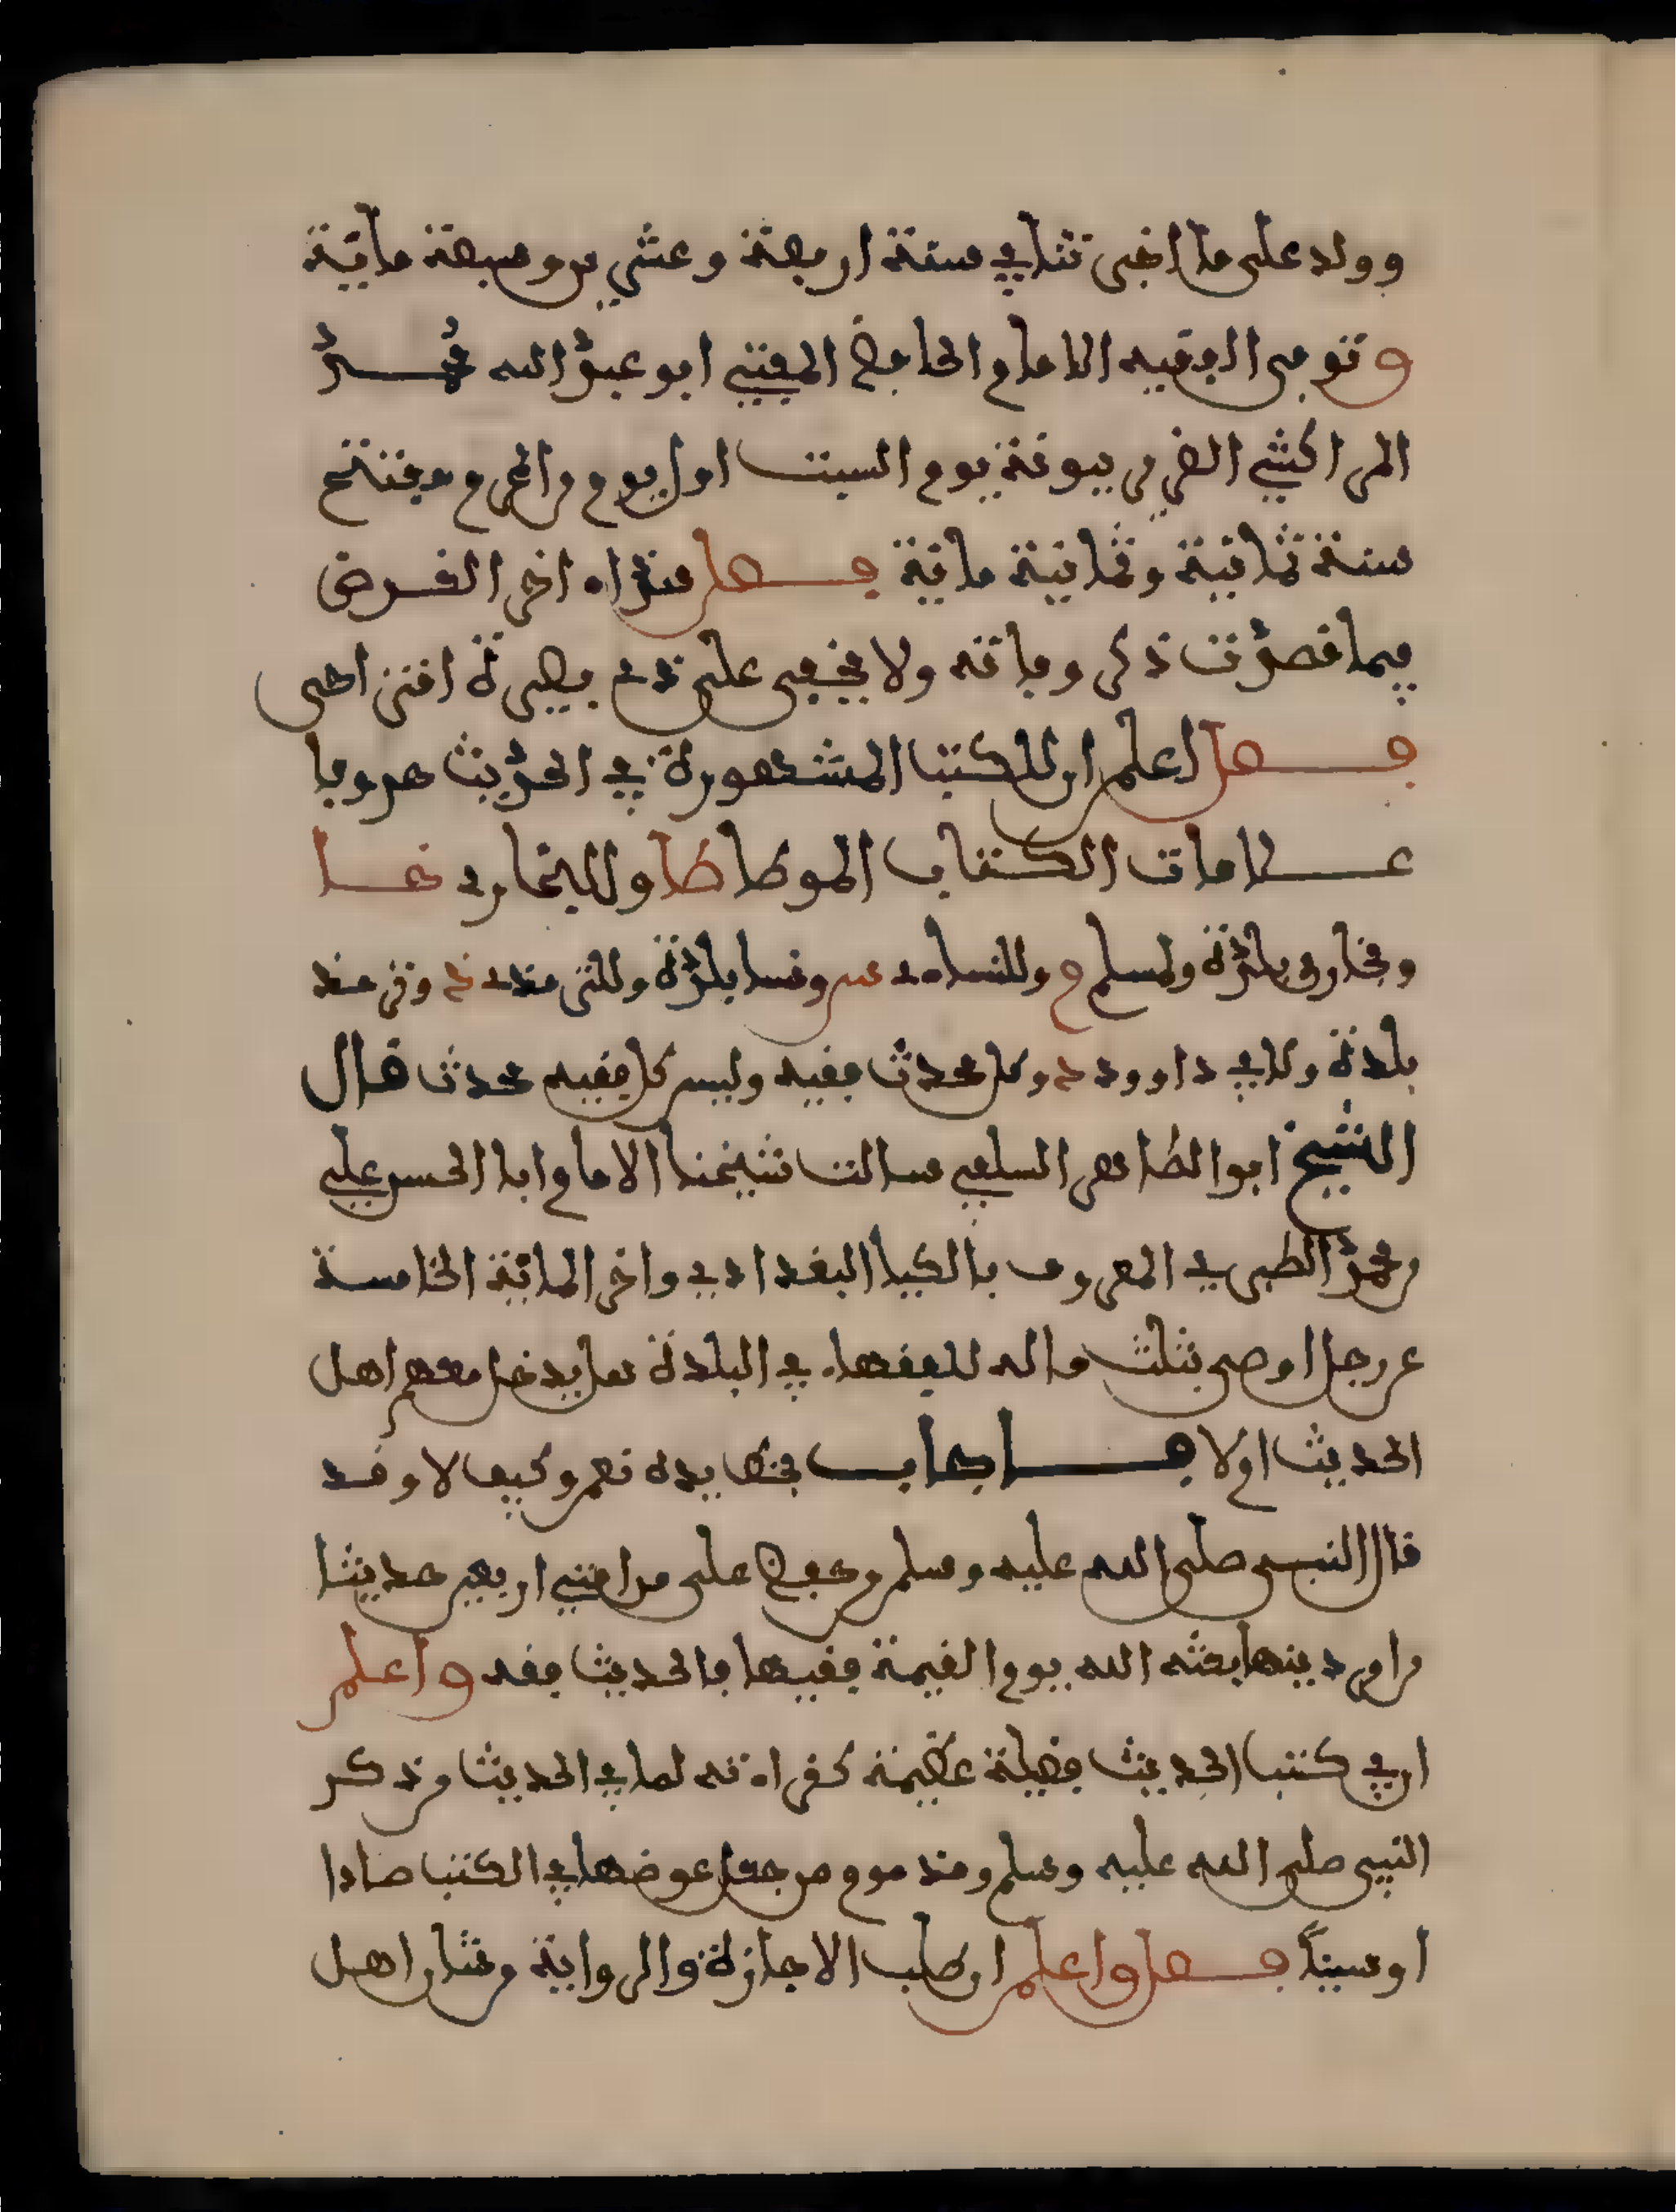 وولد على ما اخبرتنا في سنة اربعة وعشرين وسبعة ماية
وتوفى الفقيه الامام الحافظ المفتي ابو عبد الله محمد
المراكشي الضرير ببونة يوم السبت اول يوم من المحرم مفتتح
سنة ثمانية وثمانية ماية فصل هذا اخر الغرض
فيما قصدت ذكر وفاته ولا يخفى على ذي بصيرة
فصل اعلم ان للكتب المشهورة في الحديث حروفا
علامات الكتاب الموطا طا وللبخاري خ
وبخارى بلدة ولمسلم م وللنساءي س ونسا بلدة وللترمذي ت وترمذ
بلدة ولابي داوود د وكل محدث فقيه وليس كل فقيه محدث قال
الشيخ ابو الطاهر السلفي سالت شيخنا الامام ابا الحسن علي
بن محمد الطبري المعروف بالكيا البغدادي واخر الماية الخامسة
عن رجل اوصى بثلث ماله للفقهاء في البلدة هل يدخل معهم اهل
الحديث او لا فاجاب بخط يده نعم وكيف لا وقد
قال النبي صلى الله عليه وسلم من حفظ على من امتي اربعين حديثا
من امر دينها بعثه الله يوم القيمة فقيها فالحديث فقه واعلم
ان في كتب الحديث فضيلة عظيمة كقراءته لما في الحديث من ذكر
النبي صلى الله عليه وسلم ومذموم من جعل عوضها في الكتب صادا
او سينا فصل واعلم ان طلب الاجازة والرواية من شان اهل